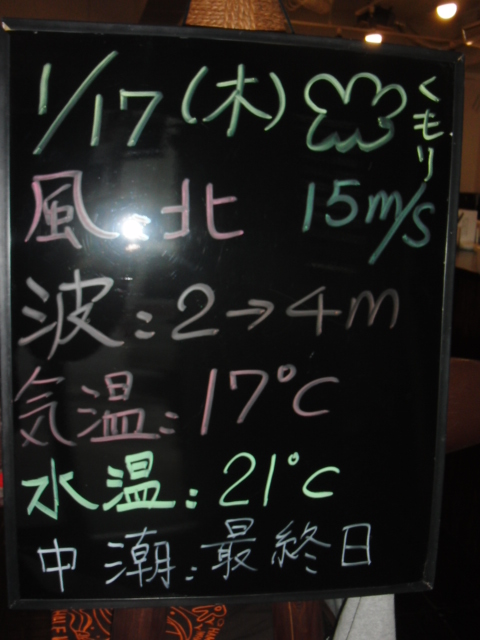 1/17(木) くもり
風: 北 15m/s
波:2→4m
気温:17℃
水温:21℃
中潮:最終日